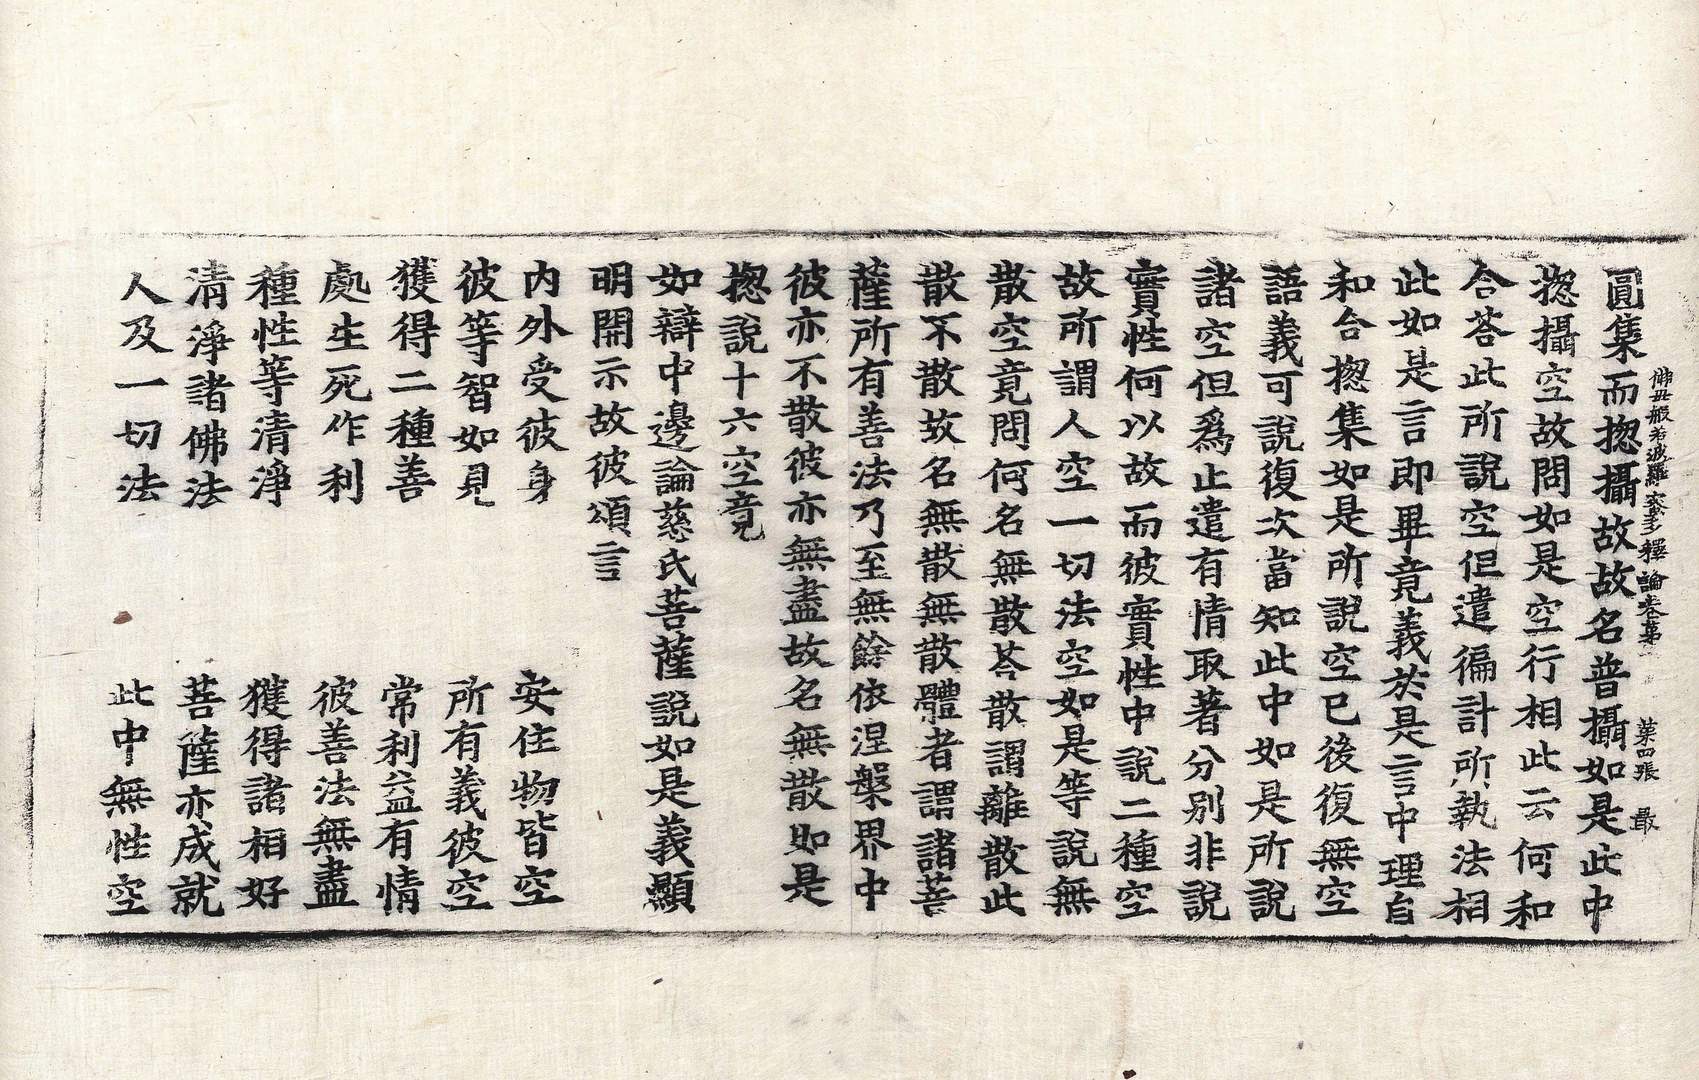 佛母般若波羅蜜多釋論卷第 葉四張 最
圓集而揔攝故故名普攝如是此中
揔攝空故問如是空行相此云何和
合荅此所說空但遣徧計所執法相
此如是言即畢竟義於是言中理自
和合揔集如是所說空已後復無空
語義可說復次當知此中如是所說
諸空但爲止遣有情取著分別非說
實性何以故而彼實性中說二種空
故所謂人空一切法空如是等說無
散空竟問何名無散荅散謂離散此
散不散故名無散無散體者謂諸菩
薩所有善法乃至無餘依涅槃界中
彼亦不散彼亦無盡故名無散如是
揔說十六空竟
如辯中邊論慈氏菩薩說如是義顯
明開示故彼頌言
内外受彼身 安住物皆空
彼等智如見 所有義彼空
獲得二種善 常利益有情
處生死作利 彼善法無盡
種性等清淨 獲得諸相好
清淨諸佛法 菩薩亦成就
人及一切法 此中無性空